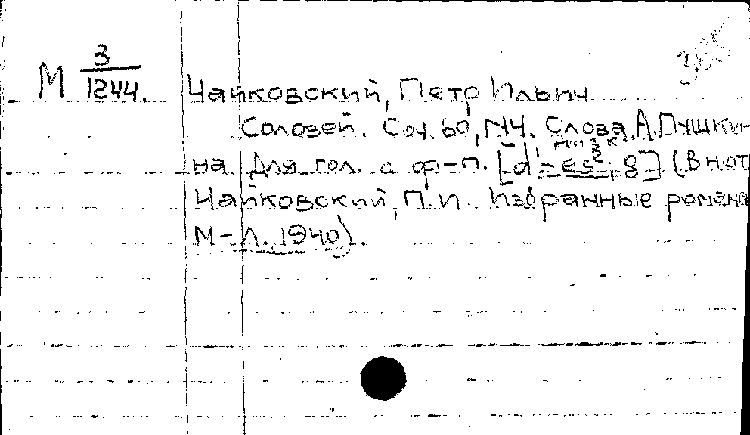 М 3/1244.
Чайковский, Петр Ильич
Соловей. Соч. 60, №4. Слова А. Пушки-
на. Для гол. с ф-п. [d¹-es², g] (В нот
Чайковский, П.И. Избранные романс
М-Л. 1940).